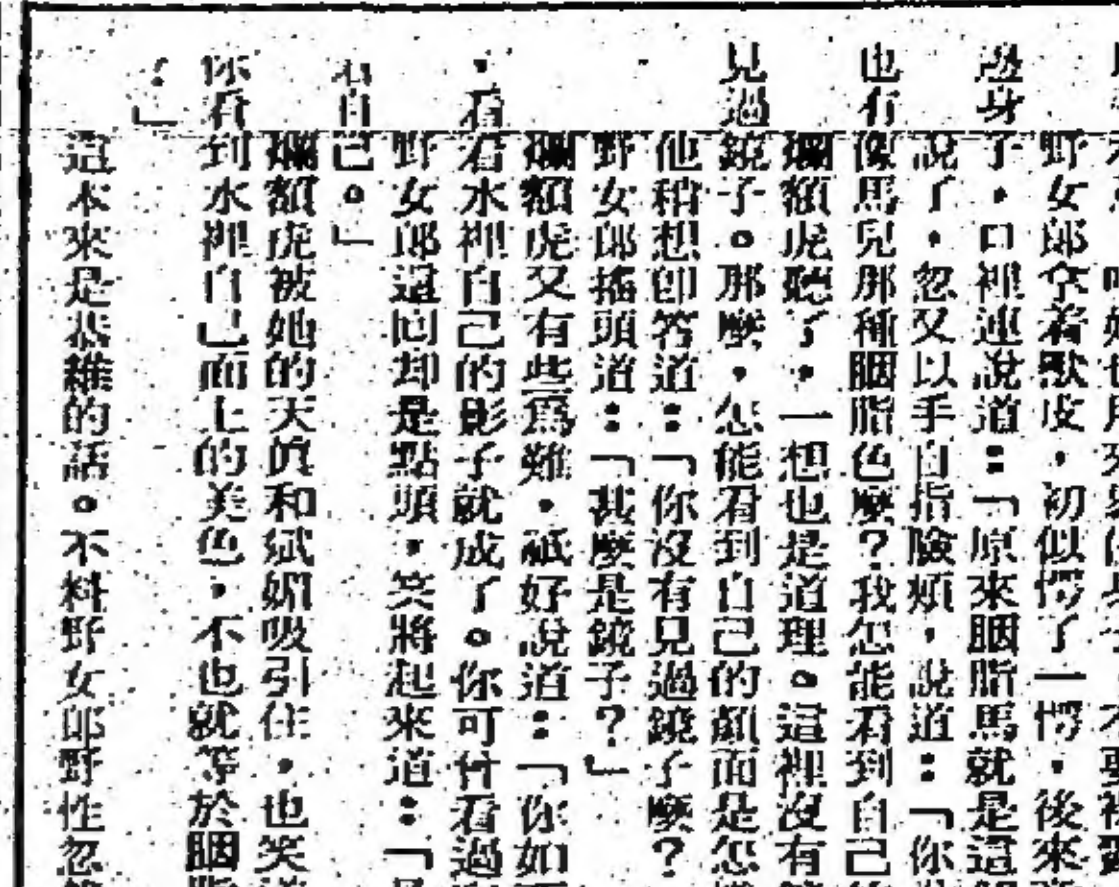 野女郎拿着獸皮，初似愕了一愕，後來
邊身子，口裡連說道：「原來胭脂馬就是這
說了，忽又以手自指臉頰，說道：「你
也有像馬兒那種胭脂色麼？我怎能看到自己
斕額虎聽了，一想也是道理。這裡沒有
見過鏡子。那麼，怎能看到自己的顏面是怎
他稍想卽答道：「你沒有見過鏡子麼？
野女郎搖頭道：「甚麼是鏡子？」
斕額虎又有些爲難，祇好說道：「你如
，看看水裡自己的影子就成了。你可曾看過
野女郎這回却是點頭，笑將起來道：「
看自己。」
斕額虎被她的天眞和斌媚吸引住，也笑道
你看到水裡自己面上的美色，不也就等於胭脂
：」
這本來是恭維的話。不料野女郎野性忽